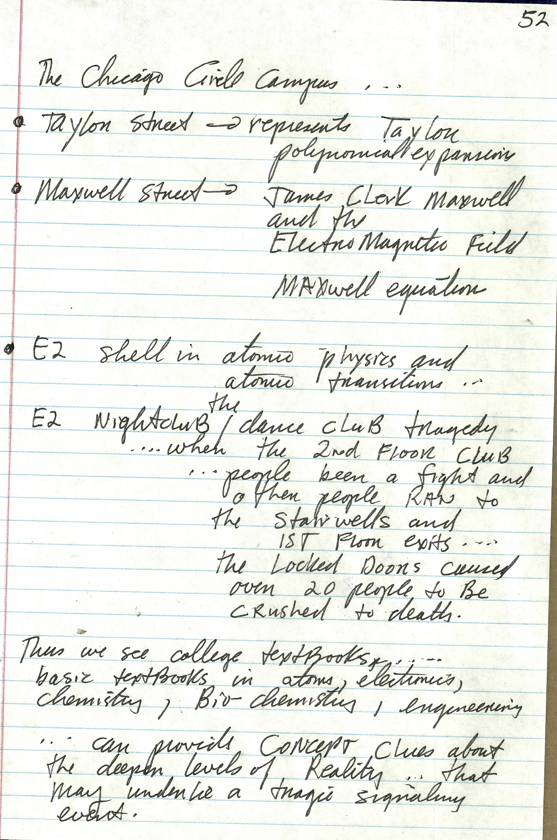 52
The Chicago Circle Campus ...
• Taylor Street → represents Taylor
polynomical expansion
• Maxwell Street → James Clerk Maxwell
and the
ElectroMagnetic Field
MAXwell equation
• E2 shell in atomic physics and
atomic transitions ...
the
E2 NightcluB / dance cluB tragedy
....when the 2nd FLOOR CLUB
... people been a fight and
other people RAN to
the Stairwells and
1ST Floor exits ....
the Locked Doors caused
over 20 people to Be
CRushed to death.
Thus we see college textBooks, .....
basic textBooks in atoms, electronics,
chemistry, Bio-chemistry, engineering
... can provide Concept Clues about
the deeper levels of Reality .. that
may underlie a tragic signaling
event.